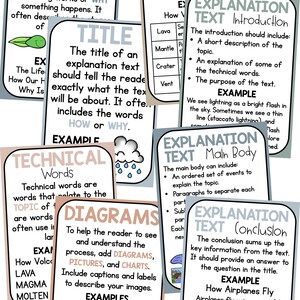 something happens. It
often describes how or
EX
The Life
How Our H
Why Is
TITLE
The title of an
explanation text
should tell the reader
exactly what the text
will be about. It often
includes the words
HOW or WHY.
EXAMPLE
EX
How Vol
Lava
Mantle
Crater
Vent
EXPLANATION
TEXT Introduction
The introduction should include:
• A short description of the
topic.
• An explanation of some of
the technical words.
• The purpose of the text.
EXAMPLE
We see lightning as a bright flash in
the sky. Sometimes we see a thin
line (staccato lightning)
TECHNICAL
Words
Technical words are
words that relate to the
TOPIC
are words
often use in
lan
EXA
How Volca
LAVA
MAGMA
MOLTEN
EXPLANATION
TEXT Main Body
The main body can include:
• An ordered set of events to
explain the topic.
• Paragraphs to separate each
par
• Sub
DIAGRAMS
To help the reader to see
and understand the
process, add DIAGRAMS,
PICTURES, and CHARTS.
Include captions and labels
to describe your images.
EXAMPLES
EXPLANATION
TEXT Conclusion
The conclusion sums up the
key information from the text.
It should provide an answer to
the question in the title.
EXAMPLE
How Airplanes Fly